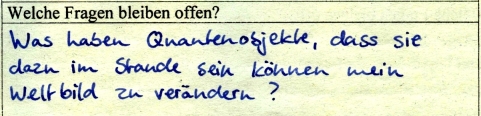 Welche Fragen bleiben offen?
Was haben Quantenobjekte, dass sie
dazu im Stande sein können mein
Weltbild zu verändern?